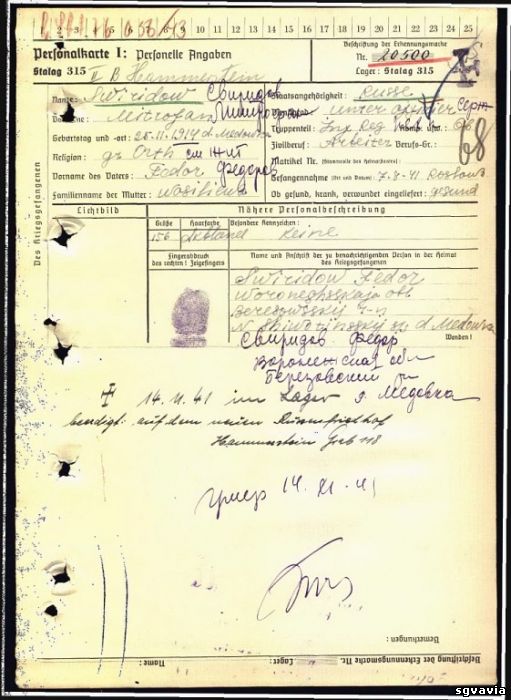 1 2 3 4 5 6 7 8 9 10 11 12 13 14 15 16 17 18 19 20 21 22 23 24 25
Personalkarte I: Personelle Angaben
Beschriftung der Erkennungsmarke
Stalag 315 II B Hammerstein
Nr. 20500
Lager: Stalag 315
Des Kriegsgefangenen
Name: Swiridow Свиридов
Staatsangehörigkeit: Russe
Mitrofan
Dienstgrad: Unteroffizier Серж
Geburtstag und -ort: 25.11.1914 d. Medowka
Truppenteil: Inf. Reg. Komp. usw.
Religion: gr. Orth
Zivilberuf: Arbeiter Berufs-Gr.:
Matrikel Nr.
Vorname des Vaters: Fedor Федоров
Gefangennahme (Ort und Datum) 7.8.41 Rostowo
Familienname der Mutter:
Ob gesund, krank, verwundet eingeliefert: gesund
68
Lichtbild
Nähere Personalbeschreibung
Größe Haarfarbe Besondere Kennzeichen:
156 dkblond Keine
Fingerabdruck des rechten! Zeigefingers
Name und Anschrift der zu benachrichtigenden Person in der Heimat des Kriegsgefangenen
Swiridow Fedor
Woroneghsskaja obl
Beresowsskij r-n
d. Medowka
Wenden!
Свиридов Федор
Воронежская обл
Березовский
д. Медовка
14.11.41 im Lager
beerdigt auf dem neuen Russenfriedhof
Hammerstein Grab 118
умер 14. XI - 41
Bemerkungen:
Beschriftung der Erkennungsmarke Nr.
Lager:
Name:
sgvavia